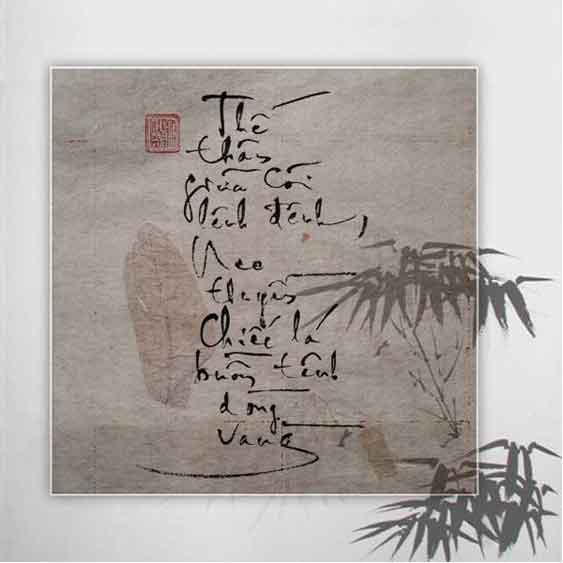 Thế
thân
giữa Cõi
lênh đênh,
Neo
thuyền
Chiếc lá
buồn tênh
dong
vang